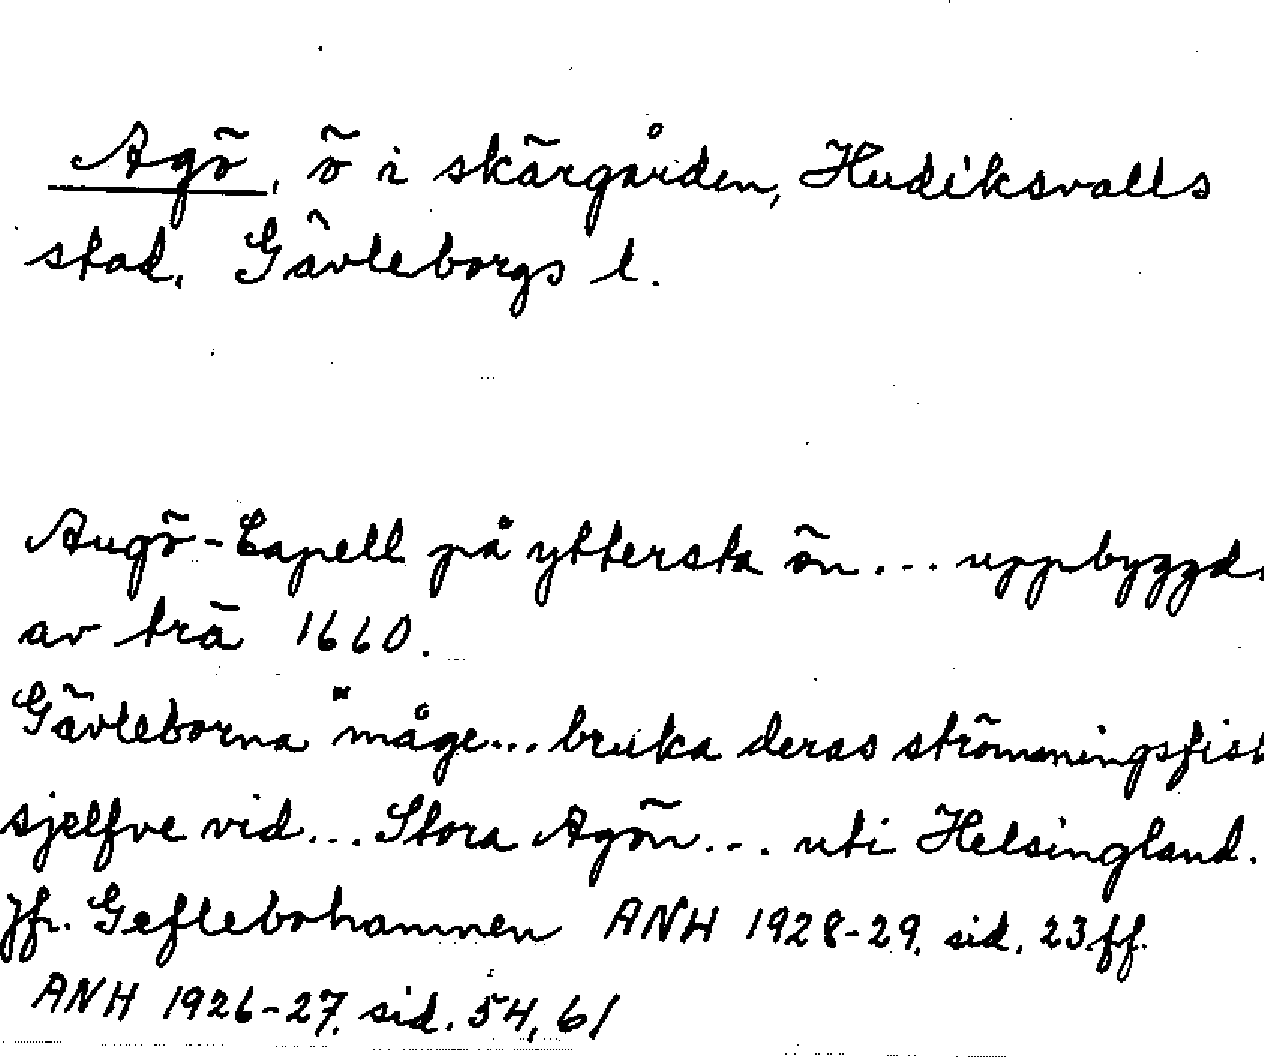 Agö, ö i skärgården, Hudiksvalls
stad, Gävleborgs l.
Augö-Capell på yttersta ön... uppbyggd
av trä 1660.
Gävleborna "måge... bruka deras strömmingsfisk
sjelfve vid... Stora Agön... uti Helsingland.
Jfr. Geflebohamnen ANH 1928-29, sid. 23ff.
ANH 1926-27, sid. 54, 61